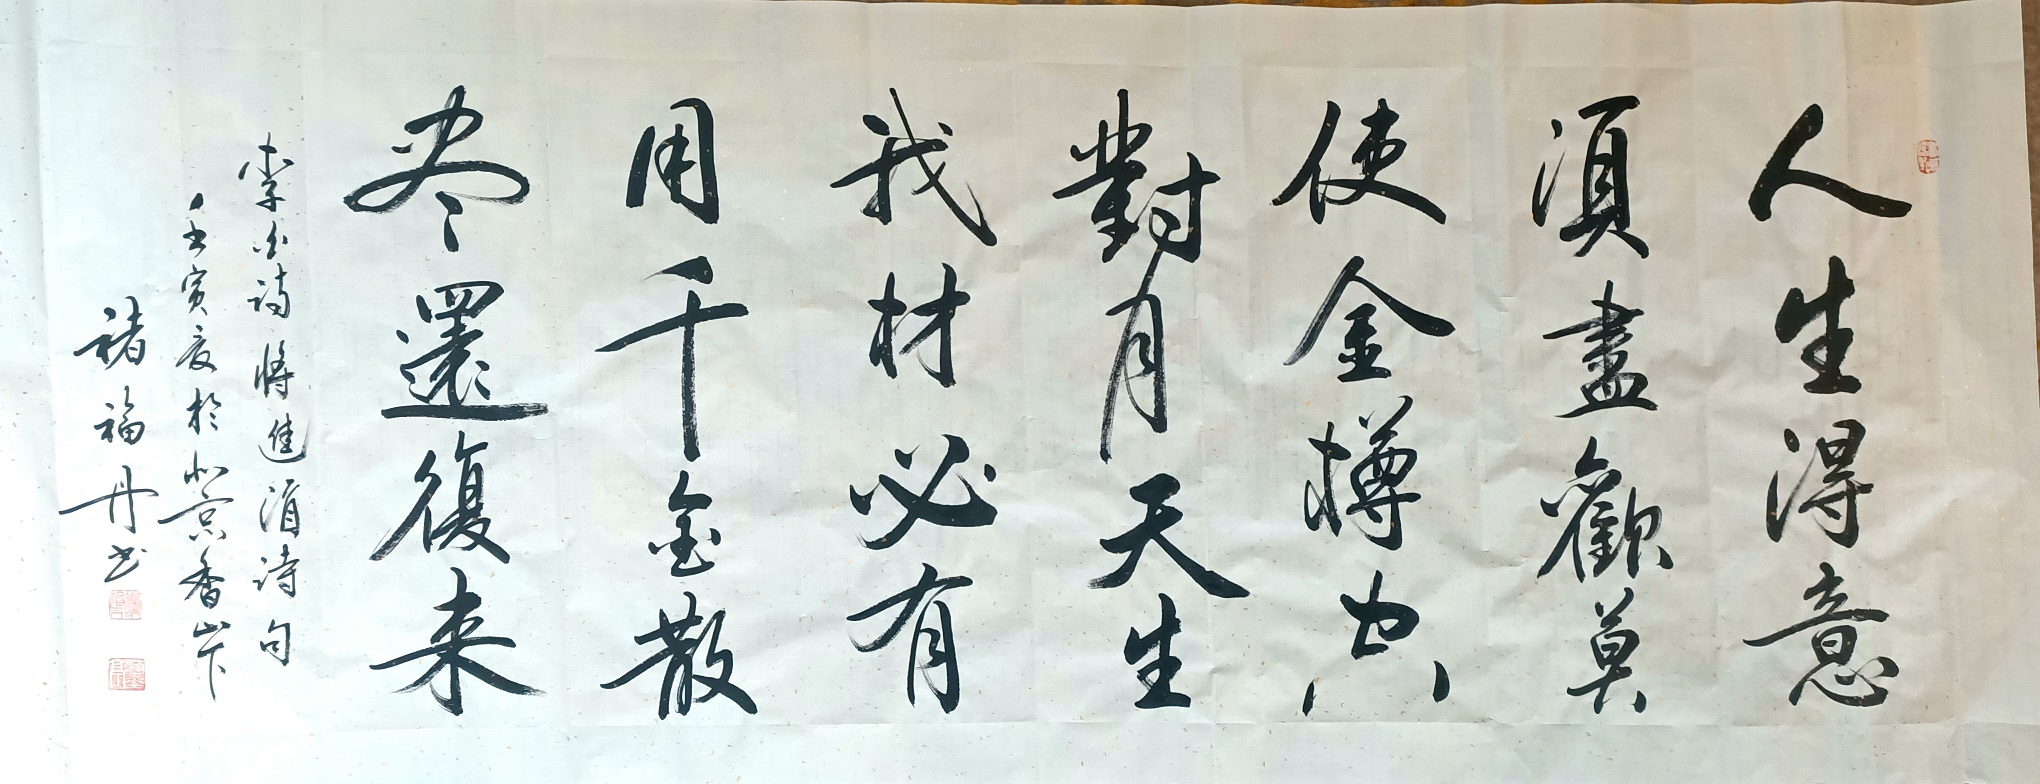 人生得意
須盡歡莫
使金樽空
對月天生
我材必有
用千金散
尽還復来
李白詩將進酒诗句
壬寅夏於北京香山下
褚福丹书